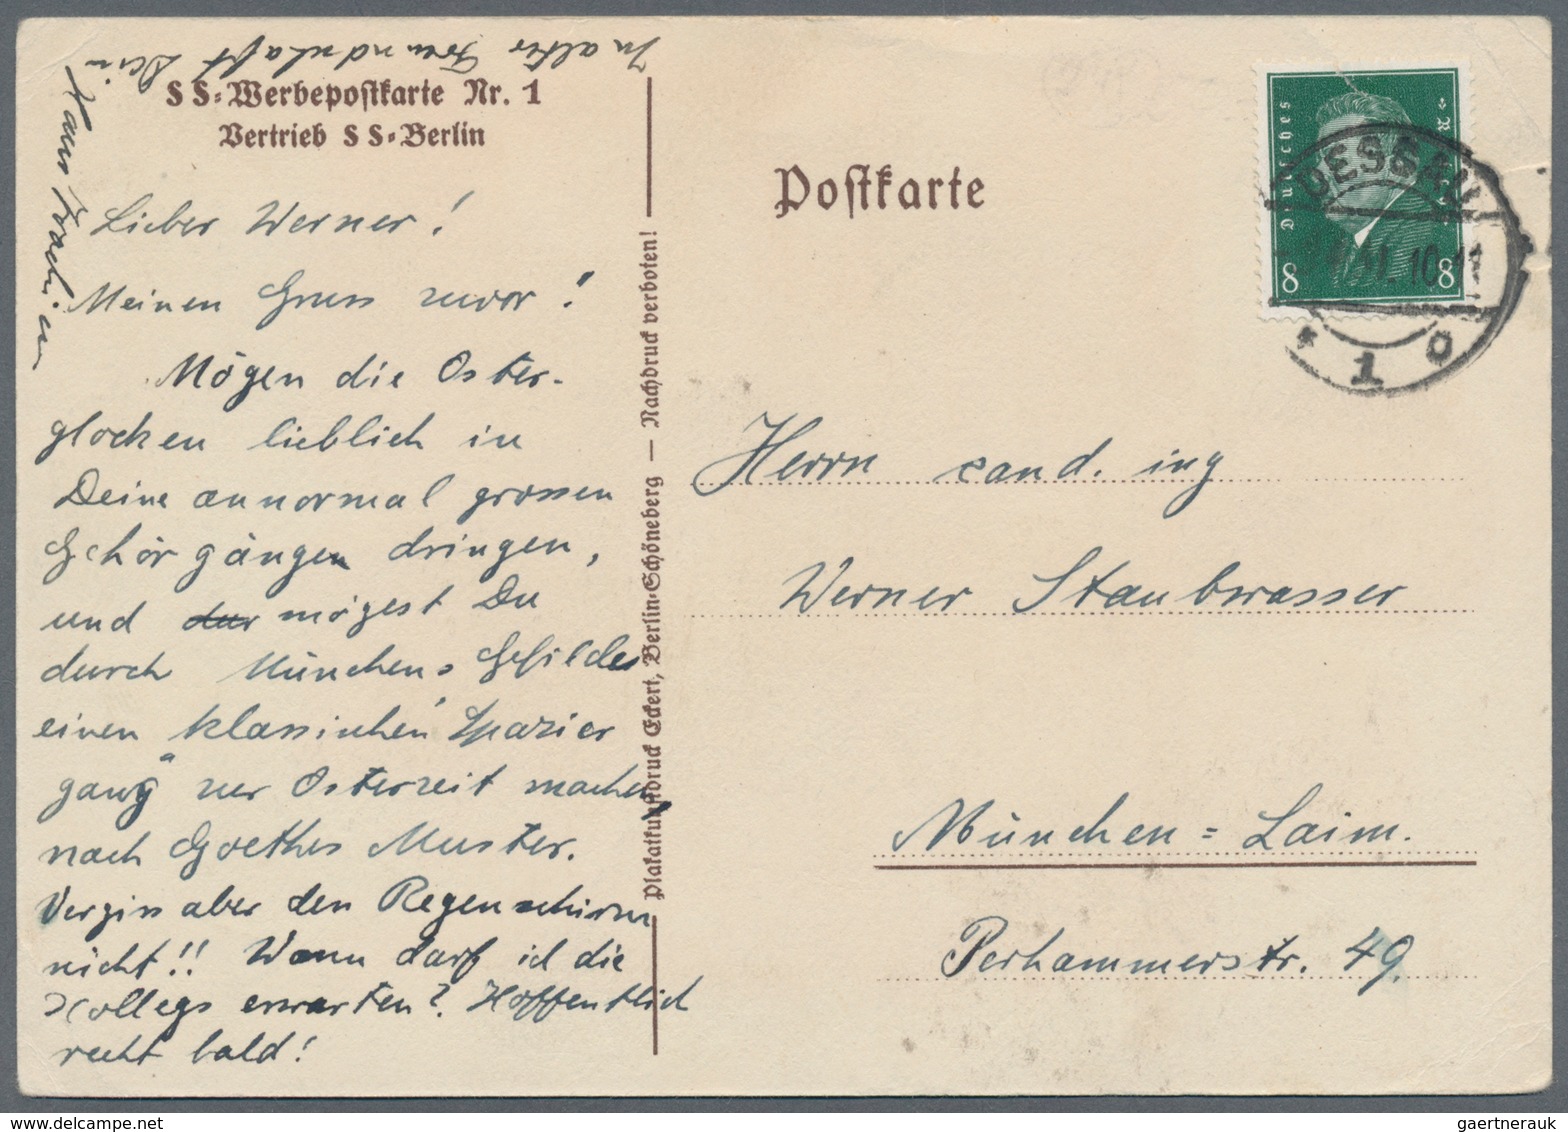 SS=Werbepostkarte Nr. 1
Vertrieb SS=Berlin
Lieber Werner!
Meinen Gruss zuvor!
Mögen die Oster-
glocken lieblich in
Deine annormal grossen
Gehörgänge dringen,
und mögest Du
durch Münchens Gefilde
einen "klassischen Spazier
gang" zur Osterzeit machen
nach Goethes Muster.
Vergiss aber den Regenschirm
nicht!! Wann darf ich die
Kollegs erwarten? Hoffentlich
recht bald!
In alter Freundschaft Dein
Hans
Plakatkunstdruck Eckert, Berlin=Schöneberg — Nachdruck verboten!
Postkarte
Deutsches
8 8
DESSAU
* 1 o
Herrn cand. ing
Werner Staubwasser
München = Laim.
Perhammerstr. 49.
gaertnerauk@yahoo.com